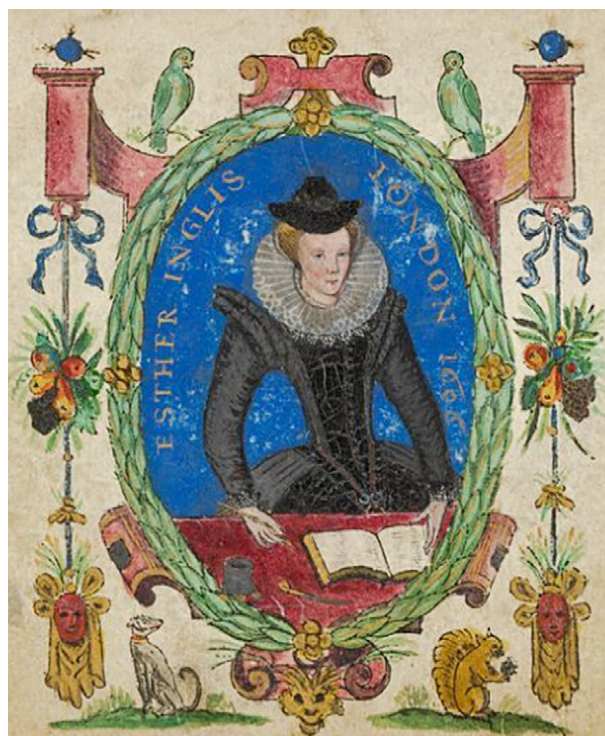 ESTHER INGLIS
LONDON 1606